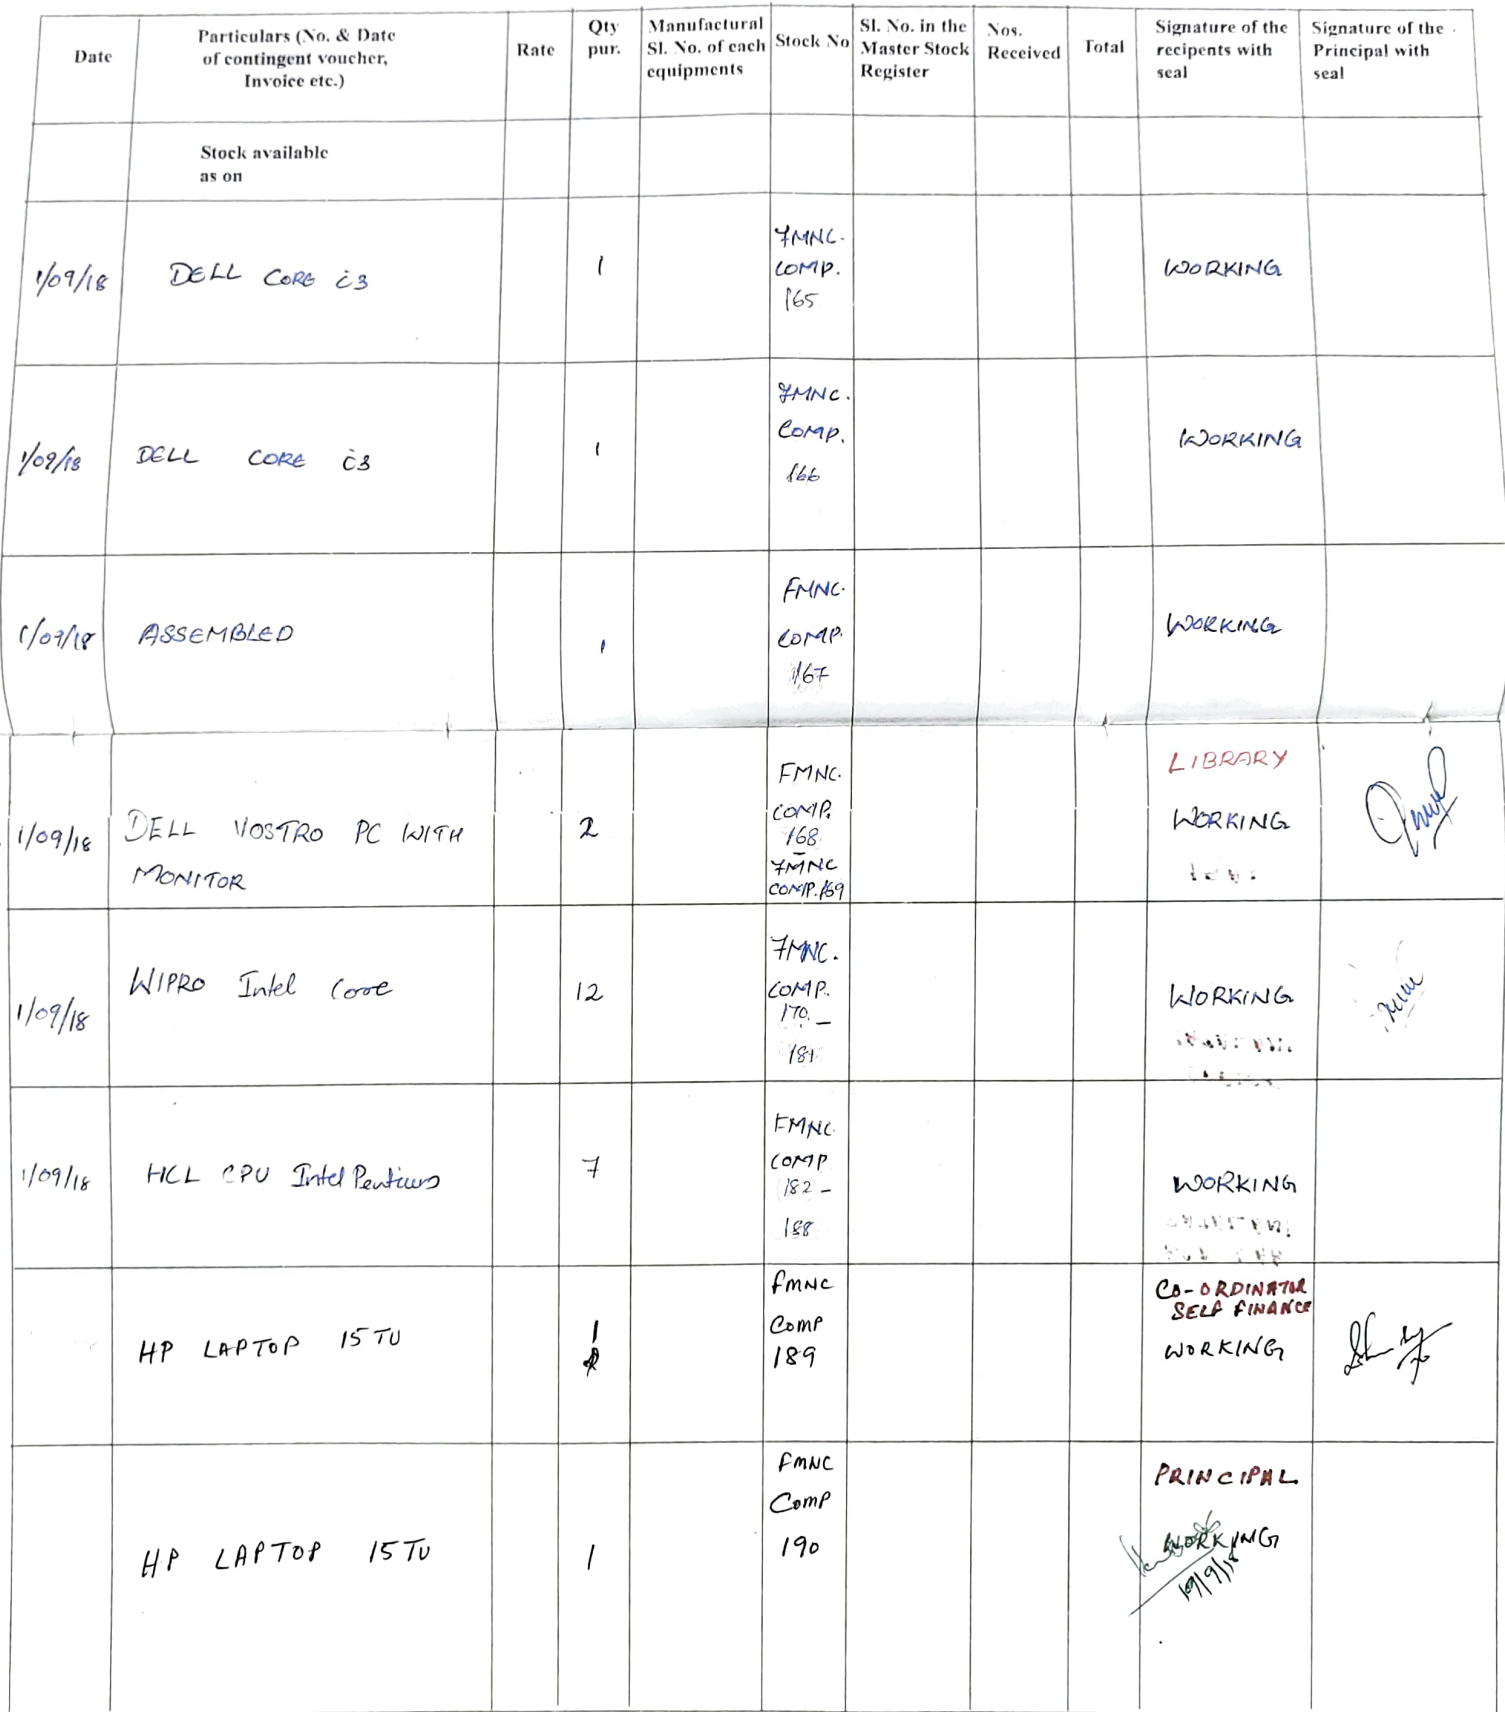 Date
Particulars (No. & Date
of contingent voucher,
Invoice etc.)
Rate
Qty
pur.
Manufactural
Sl. No. of each
equipments
Stock No
Sl. No. in the
Master Stock
Register
Nos.
Received
Total
Signature of the
recipents with
seal
Signature of the
Principal with
seal
Stock available
as on
1/09/18
DELL CORE i3
1
FMNC.
COMP.
165
WORKING
1/09/18
DELL CORE i3
1
FMNC.
COMP.
166
WORKING
1/09/18
ASSEMBLED
1
FMNC.
COMP.
167
WORKING
1/09/18
DELL VOSTRO PC WITH
MONITOR
2
FMNC.
COMP.
168
-
FMNC
COMP.169
LIBRARY
WORKING
1/09/18
WIPRO Intel Core
12
FMNC.
COMP.
170 -
181
WORKING
1/09/18
HCL CPU Intel Pentium
7
FMNC
COMP
182 -
188
WORKING
HP LAPTOP 15 TU
1
FMNC
COMP
189
CO-ORDINATOR
SELF FINANCE
WORKING
HP LAPTOP 15 TU
1
FMNC
COMP
190
PRINCIPAL
WORKING